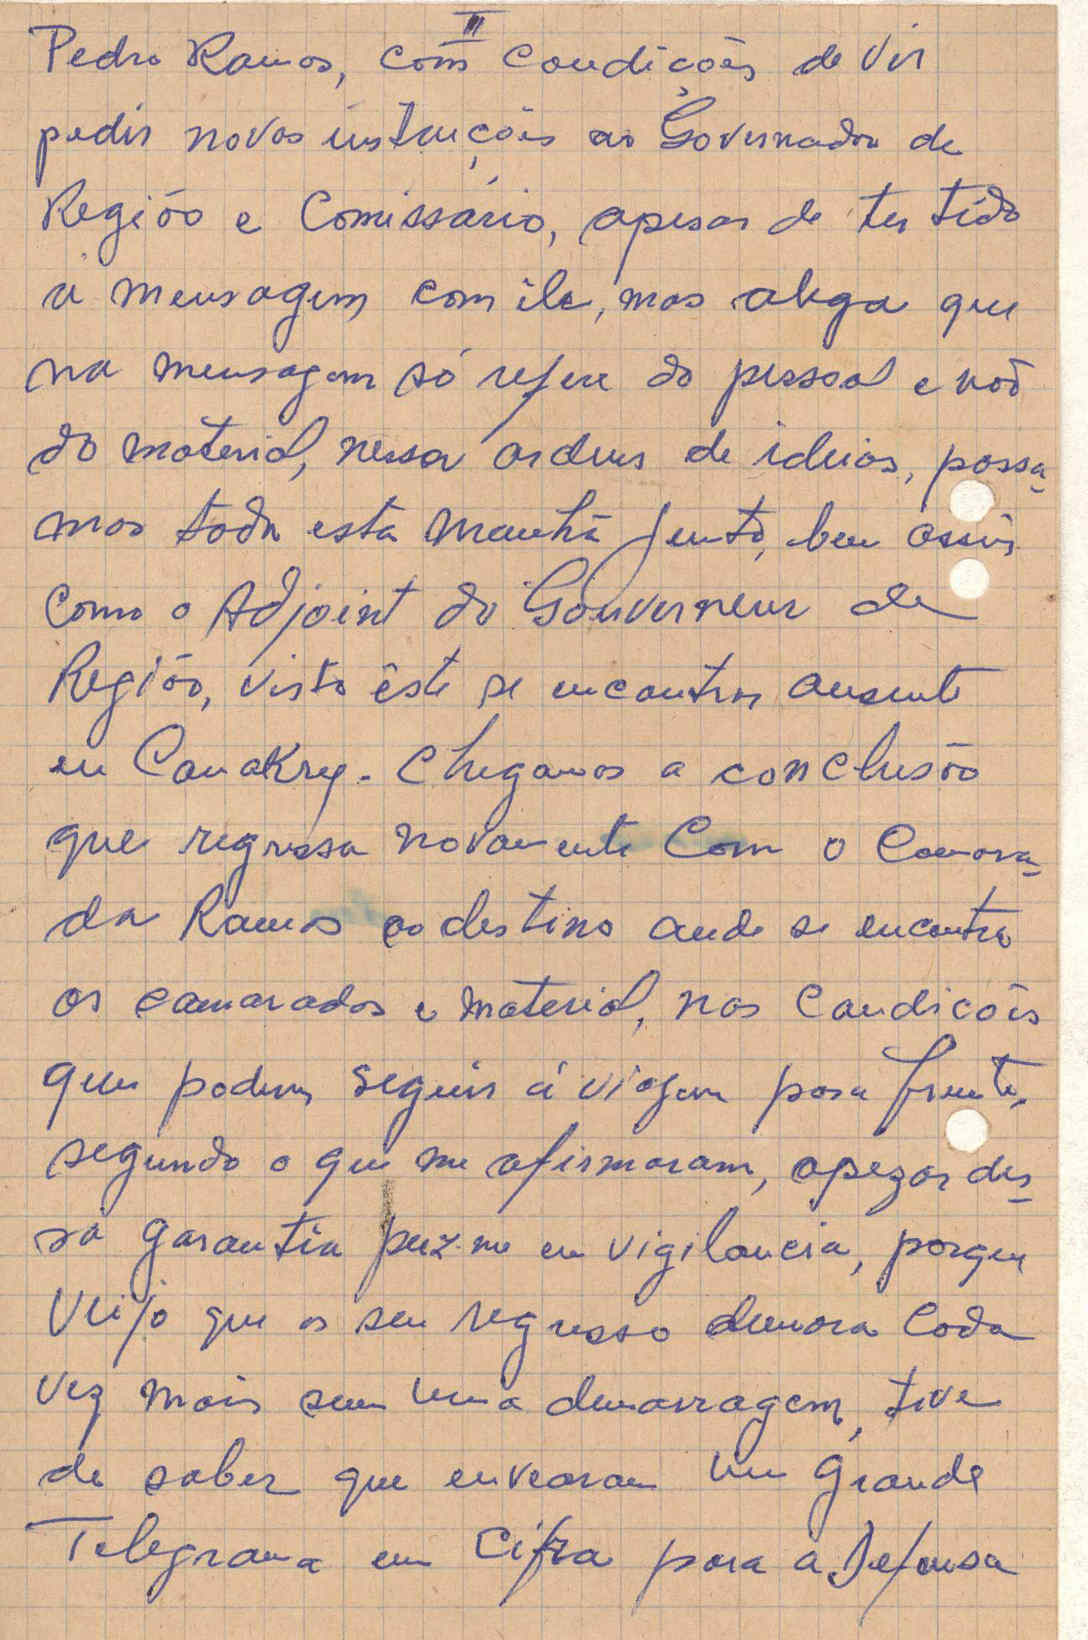 III
Pedro Ramos, com condições de vir
pedir novas instruições ao Governador de
Região e Comissário, apesar de ter tido
a mensagem com ile, mas alega que
na mensagem só refere do pessoal e não
do material, nessa ordem de ideias, passa-
mos toda esta manhã junto, bem assim
como o Adjoint do Gouverneur de
Região, visto êste se encontrar ausente
em Conakry. Chegamos a conclusão
que regressa novamente com o Camara-
da Ramos ao destino onde se encontra
os camaradas e material, nas condicões
que podem seguir á viagem para frente,
segundo o que me afirmaram, apezar des-
sa garantia puz-me em vigilancia, porque
Veijo que os seu regresso demora cada
vez mais sem uma demarragem, tive
de saber que envearam um grande
Telegrama em cifra para a Defensa